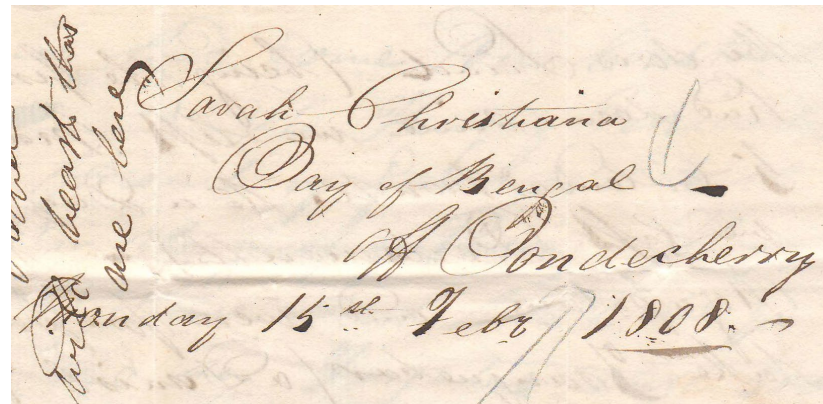 Sarah Christiana
Bay of Bengal -
off Pondecherry
Monday 15st Febr 1808. -
wild beasts than
are here